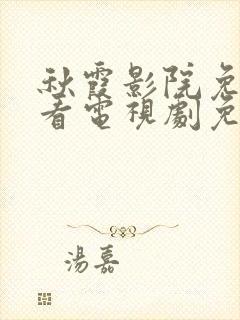 秋霞影院免
看電視劇免
湯嘉